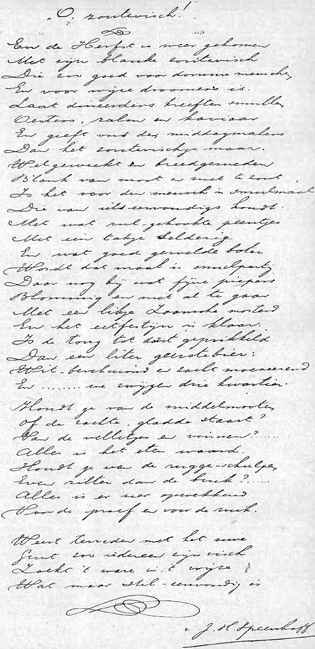 "O, zoutevisch!"
En de Herfst is weer gekomen
Met zijn blanke zoutevisch
Die zoo goed voor domme menschen
En voor wijze droomers is.
Laat dineerders kreeften smullen
Oesters, zalm en kaviaar
En geeft ons des middagmalens
Dan het zoutevischje maar.
Wel geweekt en breedgesneden
Blank van moot en niet te zout
Is het voor den mensch 'n smulmaal
Die van iets eenvoudigs houdt.
Met wat gekookte peentjes
Met een takje selderie
En wat goed gesmolten boter
Wordt dat maal 'n smulpartij
Daar nog bij wat fijne piepers
Blommig en met al te gaar
Met een likje Zaansche mosterd
En het eetfestijn is klaar.
Is de tong tot dorst geprikkeld
Dan een liter gerstebier:
Wit-beschuimd en zacht mousseerend
En ........ we zwijgen drie kwartier.
Houdt ge van de middelmooten
Of de zachte, gladde staart?
Van de velletjes en vinnen? ......
Alles is het eten waard
Houdt ge van de rugge-schulpen
Even zillten dan de buik? ......
Alles is er zeer opwekkend
Voor de proef en voor de ruik.
Weest tevreden met het uwe
Gunt zoo iedereen zijn visch
Zoekt 't ware in 't wijze
Wat maar stil-eenvoudig is
J. H. Speenhoff